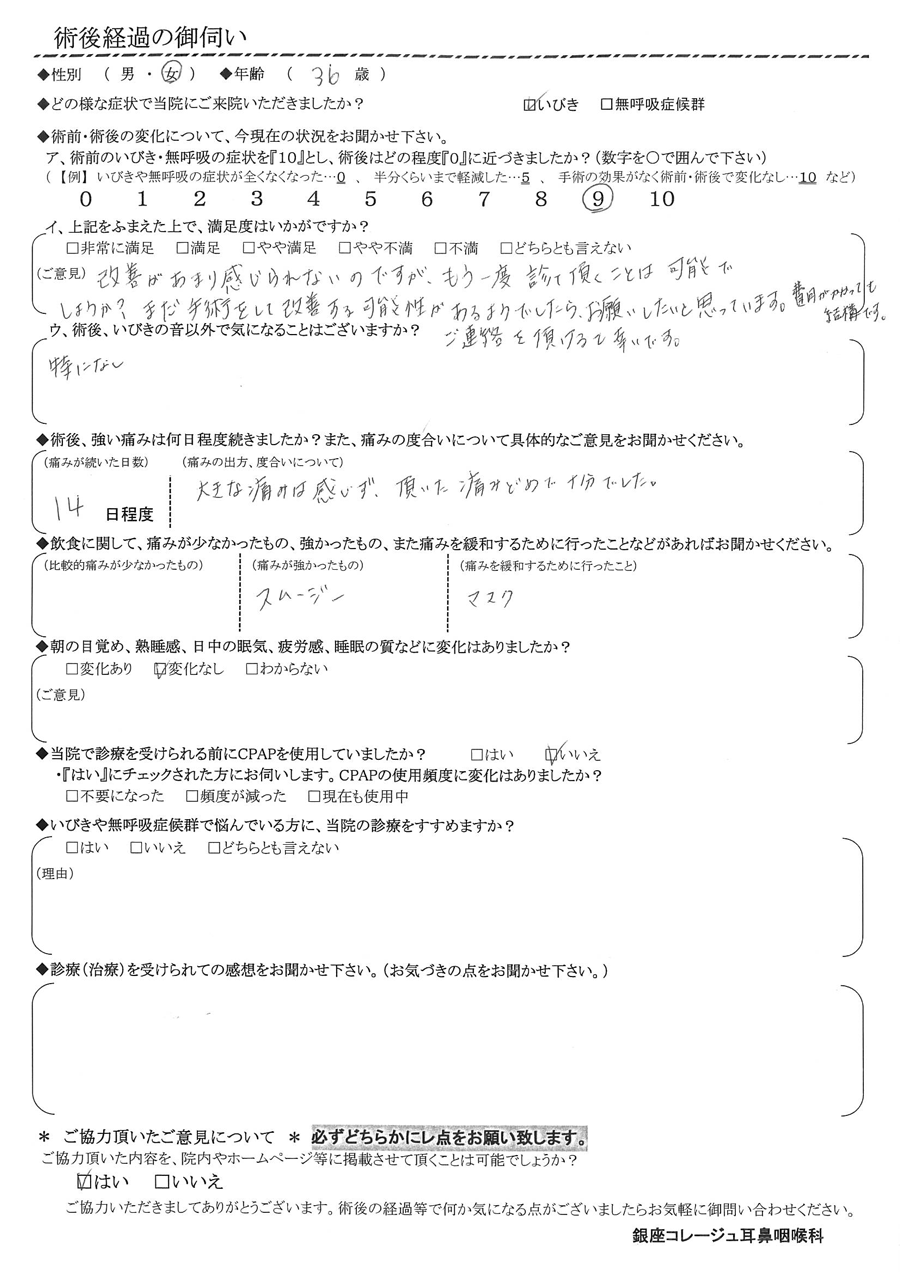 術後経過の御伺い
◆性別 （ 男 ・ 女 ） ◆年齢 （ 36 歳 ）
◆どの様な症状で当院にご来院いただきましたか？ ☑いびき □無呼吸症候群
◆術前・術後の変化について、今現在の状況をお聞かせ下さい。
ア、術前のいびき・無呼吸の症状を『10』とし、術後はどの程度『0』に近づきましたか？（数字を〇で囲んで下さい）
（ 【例】 いびきや無呼吸の症状が全くなくなった…0 、 半分くらいまで軽減した…5 、 手術の効果がなく術前・術後で変化なし…10 など）
0 1 2 3 4 5 6 7 8 9 10
イ、上記をふまえた上で、満足度はいかがですか？
□非常に満足 □満足 □やや満足 □やや不満 □不満 □どちらとも言えない
（ご意見） 改善があまり感じられないのですが、もう一度 診て頂くことは 可能で
しょうか？ まだ手術をして改善する可能性があるようでしたら、お願いしたいと思っています。費用がかかっても
結構です。
ご連絡を頂けると幸いです。
ウ、術後、いびきの音以外で気になることはございますか？
特になし
◆術後、強い痛みは何日程度続きましたか？また、痛みの度合いについて具体的なご意見をお聞かせください。
（痛みが続いた日数） （痛みの出方、度合いについて）
14 日程度
大きな痛みは感じず、頂いた痛みどめで十分でした。
◆飲食に関して、痛みが少なかったもの、強かったもの、また痛みを緩和するために行ったことなどがあればお聞かせください。
（比較的痛みが少なかったもの） （痛みが強かったもの） （痛みを緩和するために行ったこと）
スムージー マスク
◆朝の目覚め、熟睡感、日中の眠気、疲労感、睡眠の質などに変化はありましたか？
□変化あり ☑変化なし □わからない
（ご意見）
◆当院で診療を受けられる前にCPAPを使用していましたか？ □はい ☑いいえ
・『はい』にチェックされた方にお伺いします。CPAPの使用頻度に変化はありましたか？
□不要になった □頻度が減った □現在も使用中
◆いびきや無呼吸症候群で悩んでいる方に、当院の診療をすすめますか？
□はい □いいえ □どちらとも言えない
（理由）
◆診療（治療）を受けられての感想をお聞かせ下さい。（お気づきの点をお聞かせ下さい。）
＊ ご協力頂いたご意見について ＊ 必ずどちらかにレ点をお願い致します。
ご協力頂いた内容を、院内やホームページ等に掲載させて頂くことは可能でしょうか？
☑はい □いいえ
ご協力いただきましてありがとうございます。術後の経過等で何か気になる点がございましたらお気軽に御問い合わせください。
銀座コレージュ耳鼻咽喉科